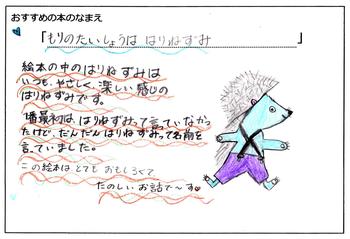 おすすめの本のなまえ
「もりのたいしょうは はりねずみ」
絵本の中のはりねずみは
いつも、やさしく、楽しい感じの
はりねずみです。
1番最初は、はりねずみって言ていなかっ
たけど、だんだんはりねずみって名前を
言ていました。
この絵本は とても おもしろくて
たのしい お話で～す